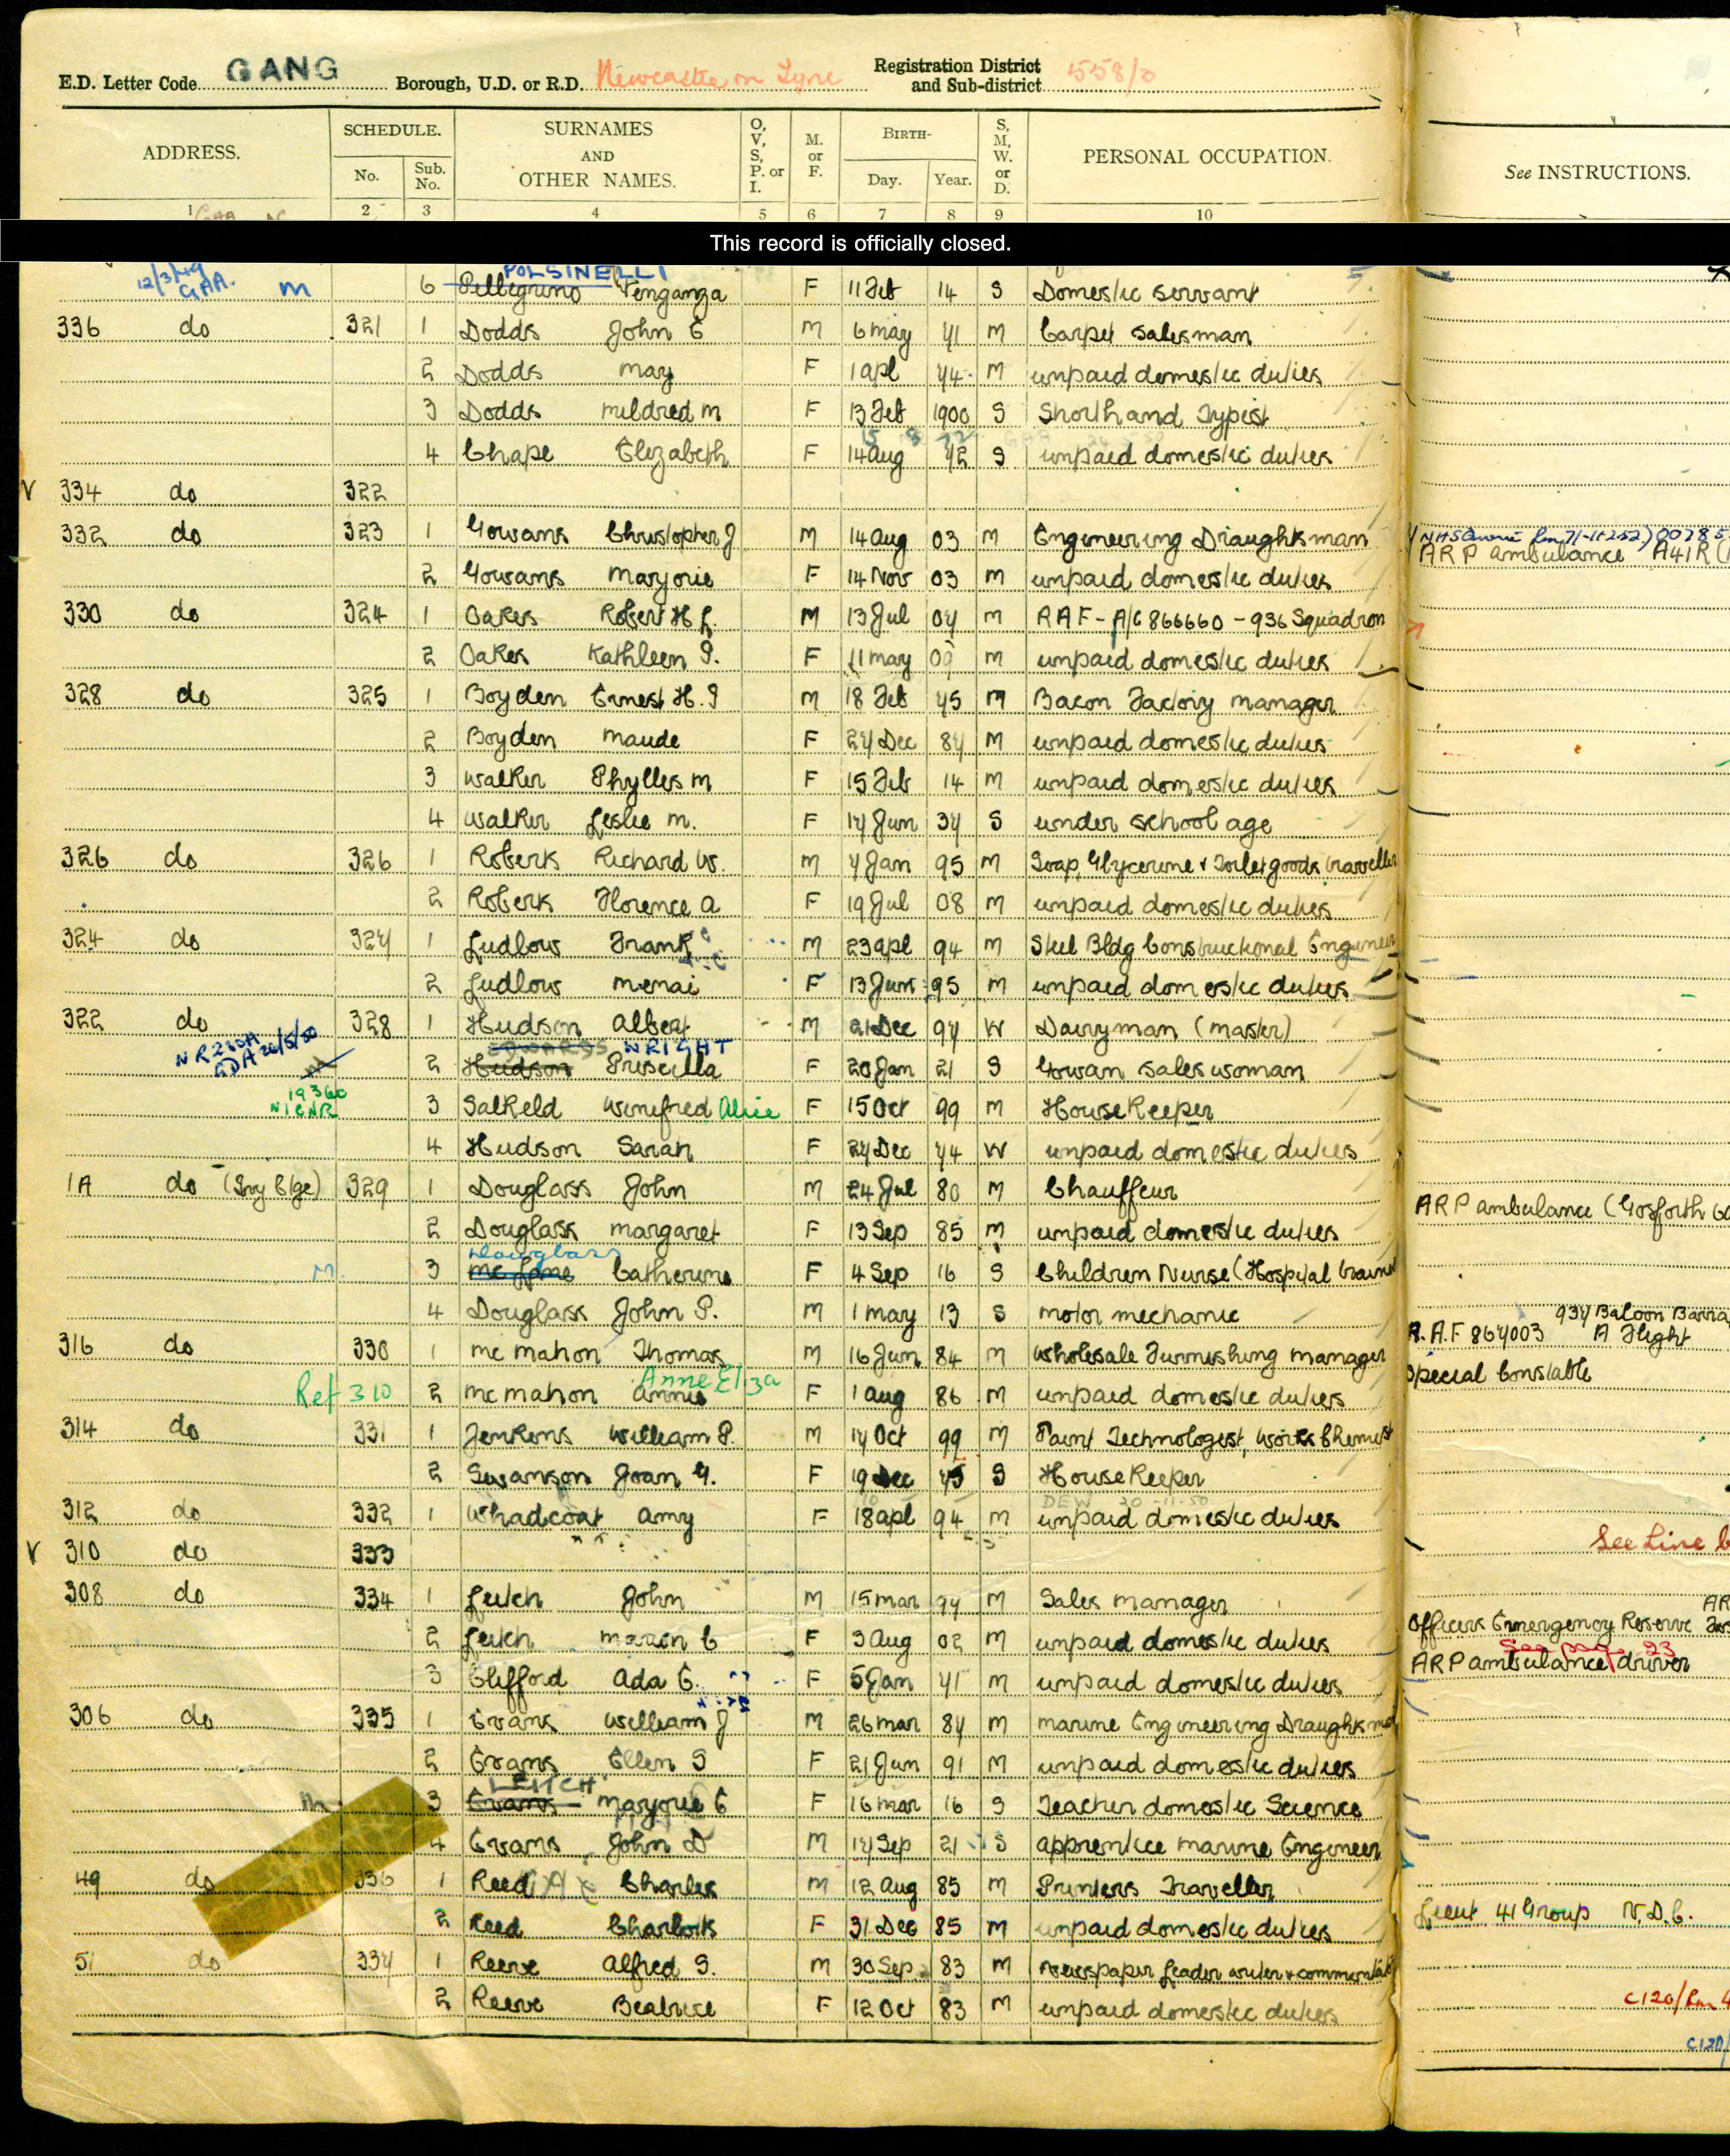 E.D. Letter Code GANG Borough, U.D. or R.D. Newcastle on Tyne Registration District and Sub-district 558/
ADDRESS. SCHEDULE. No. Sub. No. SURNAMES AND OTHER NAMES. O, V, S, P. or I. M. or F. BIRTH- Day. Year. S, M, W. or D. PERSONAL OCCUPATION. See INSTRUCTIONS.
1 2 3 4 5 6 7 8 9 10
This record is officially closed.
12/3/49 GAA. M POLSINELLI
6 Pellegrino Venganza F 11 Feb 14 S Domestic servant
336 do 321 1 Dodds John E M 6 may 71 M Carpet salesman
2 Dodds may F 1 apl 74 M unpaid domestic duties
3 Dodds mildred m F 13 Feb 1900 S Shorthand Typist
4 Chape Elizabeth F 14 Aug 72 S unpaid domestic duties
V 334 do 322
332 do 323 1 Gowans Christopher J M 14 Aug 03 m Engineering Draughtsman ARP ambulance A41R
2 Gowans marjorie F 14 Nov 03 m unpaid domestic duties
330 do 324 1 Oakes Robert H L. M 13 Jul 07 m RAF - A/C 866660 - 936 Squadron
2 Oakes Kathleen I. F 11 may 09 m unpaid domestic duties
328 do 325 1 Boyden Ernest H. I M 18 Feb 75 m Bacon Factory manager
2 Boyden maude F 27 Dec 87 M unpaid domestic duties
3 walker Phyllis m F 15 Feb 14 m unpaid domestic duties
4 walker Leslie m. F 17 Jun 37 S under school age
326 do 326 1 Roberts Richard W. m 7 Jan 95 M Soap, Glycerine & Toilet goods traveller
2 Roberts Florence a F 19 Jul 08 M unpaid domestic duties
324 do 327 1 Ludlow Frank M 23 apl 94 M Steel Bldg Constructional Engineer
2 Ludlow menai F 13 Jun 95 M unpaid domestic duties
322 do 328 1 Hudson Albert M 21 Dec 97 W Dairyman (master)
EDWARDS WRIGHT
2 Hudson Priscilla F 20 Jan 21 S Gowan saleswoman
3 Salkeld Winifred Alice F 15 Oct 99 m HouseKeeper
4 Hudson Sarah F 27 Dec 74 W unpaid domestic duties
1A do (Ivy Ctge) 329 1 Douglass John M 24 Jul 80 M Chauffeur ARP ambulance (Gosforth
2 Douglass margaret F 13 Sep 85 m unpaid domestic duties
Douglass
M 3 Catherine F 4 Sep 16 S Children Nurse (Hospital trained
4 Douglass John P. M 1 may 13 S motor mechanic 937 Baloon Barra
R.A.F 867003 A Flight
316 do 330 1 mc mahon Thomas M 16 Jun 84 m Wholesale Furnishing manager Special Constable
Anne Eliza
Ref 310 2 mc mahon annie F 1 aug 86 m unpaid domestic duties
314 do 331 1 Jenkins William P. M 17 Oct 99 m Paint Technologist, Works Chemist
2 Swanson Joan G. F 19 Dec 75 S HouseKeeper
DEW 20-11-50
312 do 332 1 Whadcoat amy F 18 apl 94 m unpaid domestic duties
V 310 do 333 See Line
308 do 334 1 Leitch John M 15 mar 97 M Sales manager
Officers Emergency Reserve
2 Leitch marion C F 3 Aug 02 M unpaid domestic duties
See page 23
ARP ambulance driver
3 Clifford Ada E. F 5 Jan 71 m unpaid domestic duties
306 do 335 1 Evans William J M 26 mar 87 m marine Engineering Draughtsman
2 Evans Ellen S F 21 Jun 91 M unpaid domestic duties
LEITCH
3 Evans marjorie E F 16 mar 16 S Teacher domestic Science
4 Evans John D M 17 Sep 21 S apprentice marine Engineer
49 do 336 1 Reed Charles M 12 Aug 85 m Printers Traveller
2 Reed Charlotte F 31 Dec 85 M unpaid domestic duties Lieut 41 Group N.D.C.
51 do 337 1 Reeve Alfred S. M 30 Sep 83 m newspaper Leader writer &
2 Reeve Beatrice F 12 Oct 83 M unpaid domestic duties